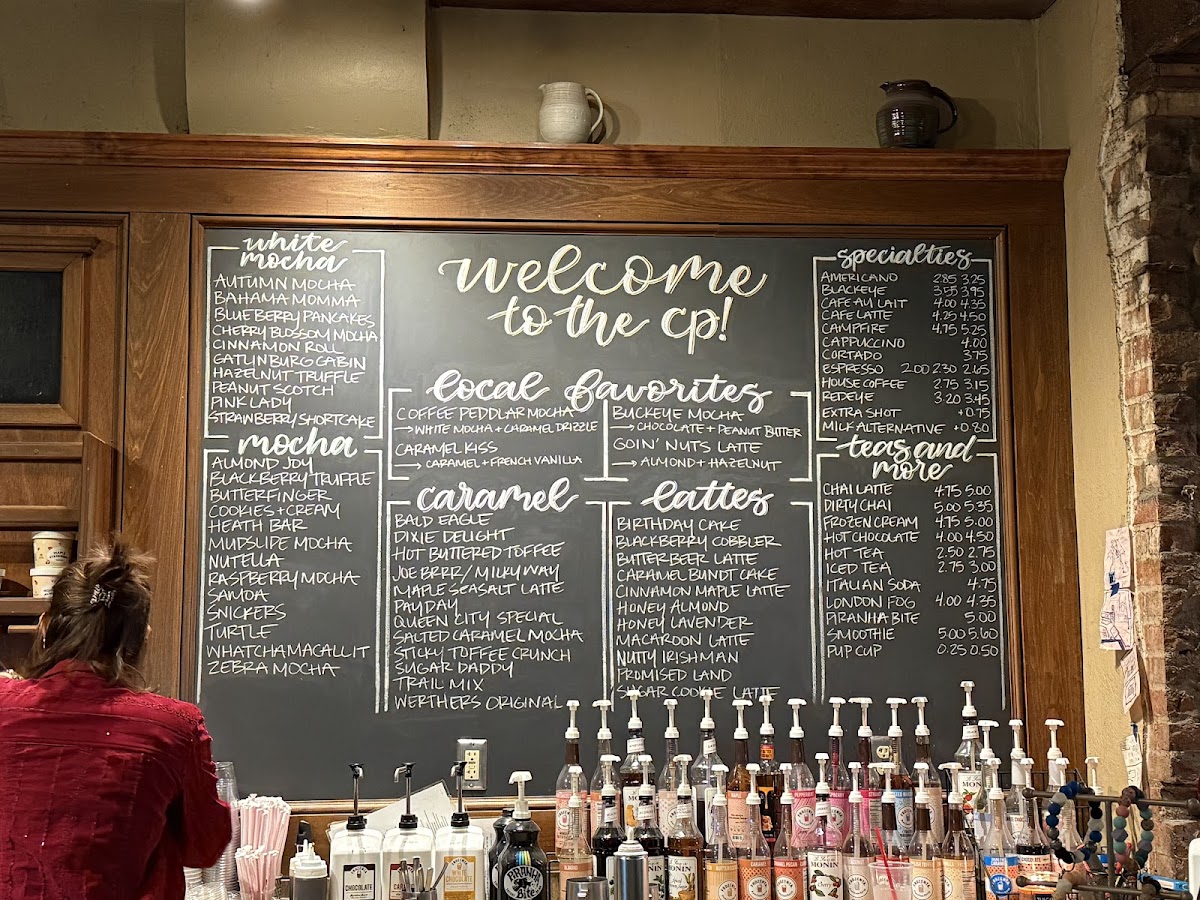 white
mocha
AUTUMN MOCHA
BAHAMA MOMMA
BLUEBERRY PANCAKES
CHERRY BLOSSOM MOCHA
CINNAMON ROLL
GATLINBURG CABIN
HAZELNUT TRUFFLE
PEANUT SCOTCH
PINK LADY
STRAWBERRY SHORTCAKE
mocha
ALMOND JOY
BLACKBERRY TRUFFLE
BUTTERFINGER
COOKIES + CREAM
HEATH BAR
MUDSLIDE MOCHA
NUTELLA
RASPBERRY MOCHA
SAMOA
SNICKERS
TURTLE
WHATCHAMACALLIT
ZEBRA MOCHA
welcome
to the cp!
local favorites
COFFEE PEDDLAR MOCHA
→ WHITE MOCHA + CARAMEL DRIZZLE
CARAMEL KISS
→ CARAMEL + FRENCH VANILLA
BUCKEYE MOCHA
→ CHOCOLATE + PEANUT BUTTER
GOIN' NUTS LATTE
→ ALMOND + HAZELNUT
caramel
BALD EAGLE
DIXIE DELIGHT
HOT BUTTERED TOFFEE
JOE BRRR / MILKY WAY
MAPLE SEASALT LATTE
PAYDAY
QUEEN CITY SPECIAL
SALTED CARAMEL MOCHA
STICKY TOFFEE CRUNCH
SUGAR DADDY
TRAIL MIX
WERTHERS ORIGINAL
lattes
BIRTHDAY CAKE
BLACKBERRY COBBLER
BUTTERBEER LATTE
CARAMEL BUNDT CAKE
CINNAMON MAPLE LATTE
HONEY ALMOND
HONEY LAVENDER
MACAROON LATTE
NUTTY IRISHMAN
PROMISED LAND
SUGAR COOKIE LATTE
specialties
AMERICANO 2.85 3.25
BLACKEYE 3.55 3.95
CAFE AU LAIT 4.00 4.35
CAFE LATTE 4.25 4.50
CAMPFIRE 4.75 5.25
CAPPUCCINO 4.00
CORTADO 3.75
ESPRESSO 2.00 2.30 2.65
HOUSE COFFEE 2.75 3.15
REDEYE 3.20 3.45
EXTRA SHOT +0.75
MILK ALTERNATIVE +0.80
teas and
more
CHAI LATTE 4.75 5.00
DIRTY CHAI 5.00 5.35
FROZEN CREAM 4.75 5.00
HOT CHOCOLATE 4.00 4.50
HOT TEA 2.50 2.75
ICED TEA 2.75 3.00
ITALIAN SODA 4.75
LONDON FOG 4.00 4.35
PIRANHA BITE 5.00
SMOOTHIE 5.00 5.60
PUP CUP 0.25 0.50
CHOCOLATE
PIRANHA
Bite
MONIN
MONIN